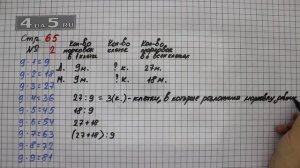 4 ДА 5.RU
Стр. 65
№ 2
9·1=9
9·2=18
9·3=27
9·4=36
9·5=45
9·6=54
9·7=63
9·8=72
9·9=81
Кол-во морковок в 1 клетке
Кол-во клеток
Кол-во морковок во всех клетках
Д. 9м. ? к. 27м.
М. 9м. ? к. 18м.
27:9=3(к.)-клетки, в которые разложили морковку
18:9
27+18
(27+18):9